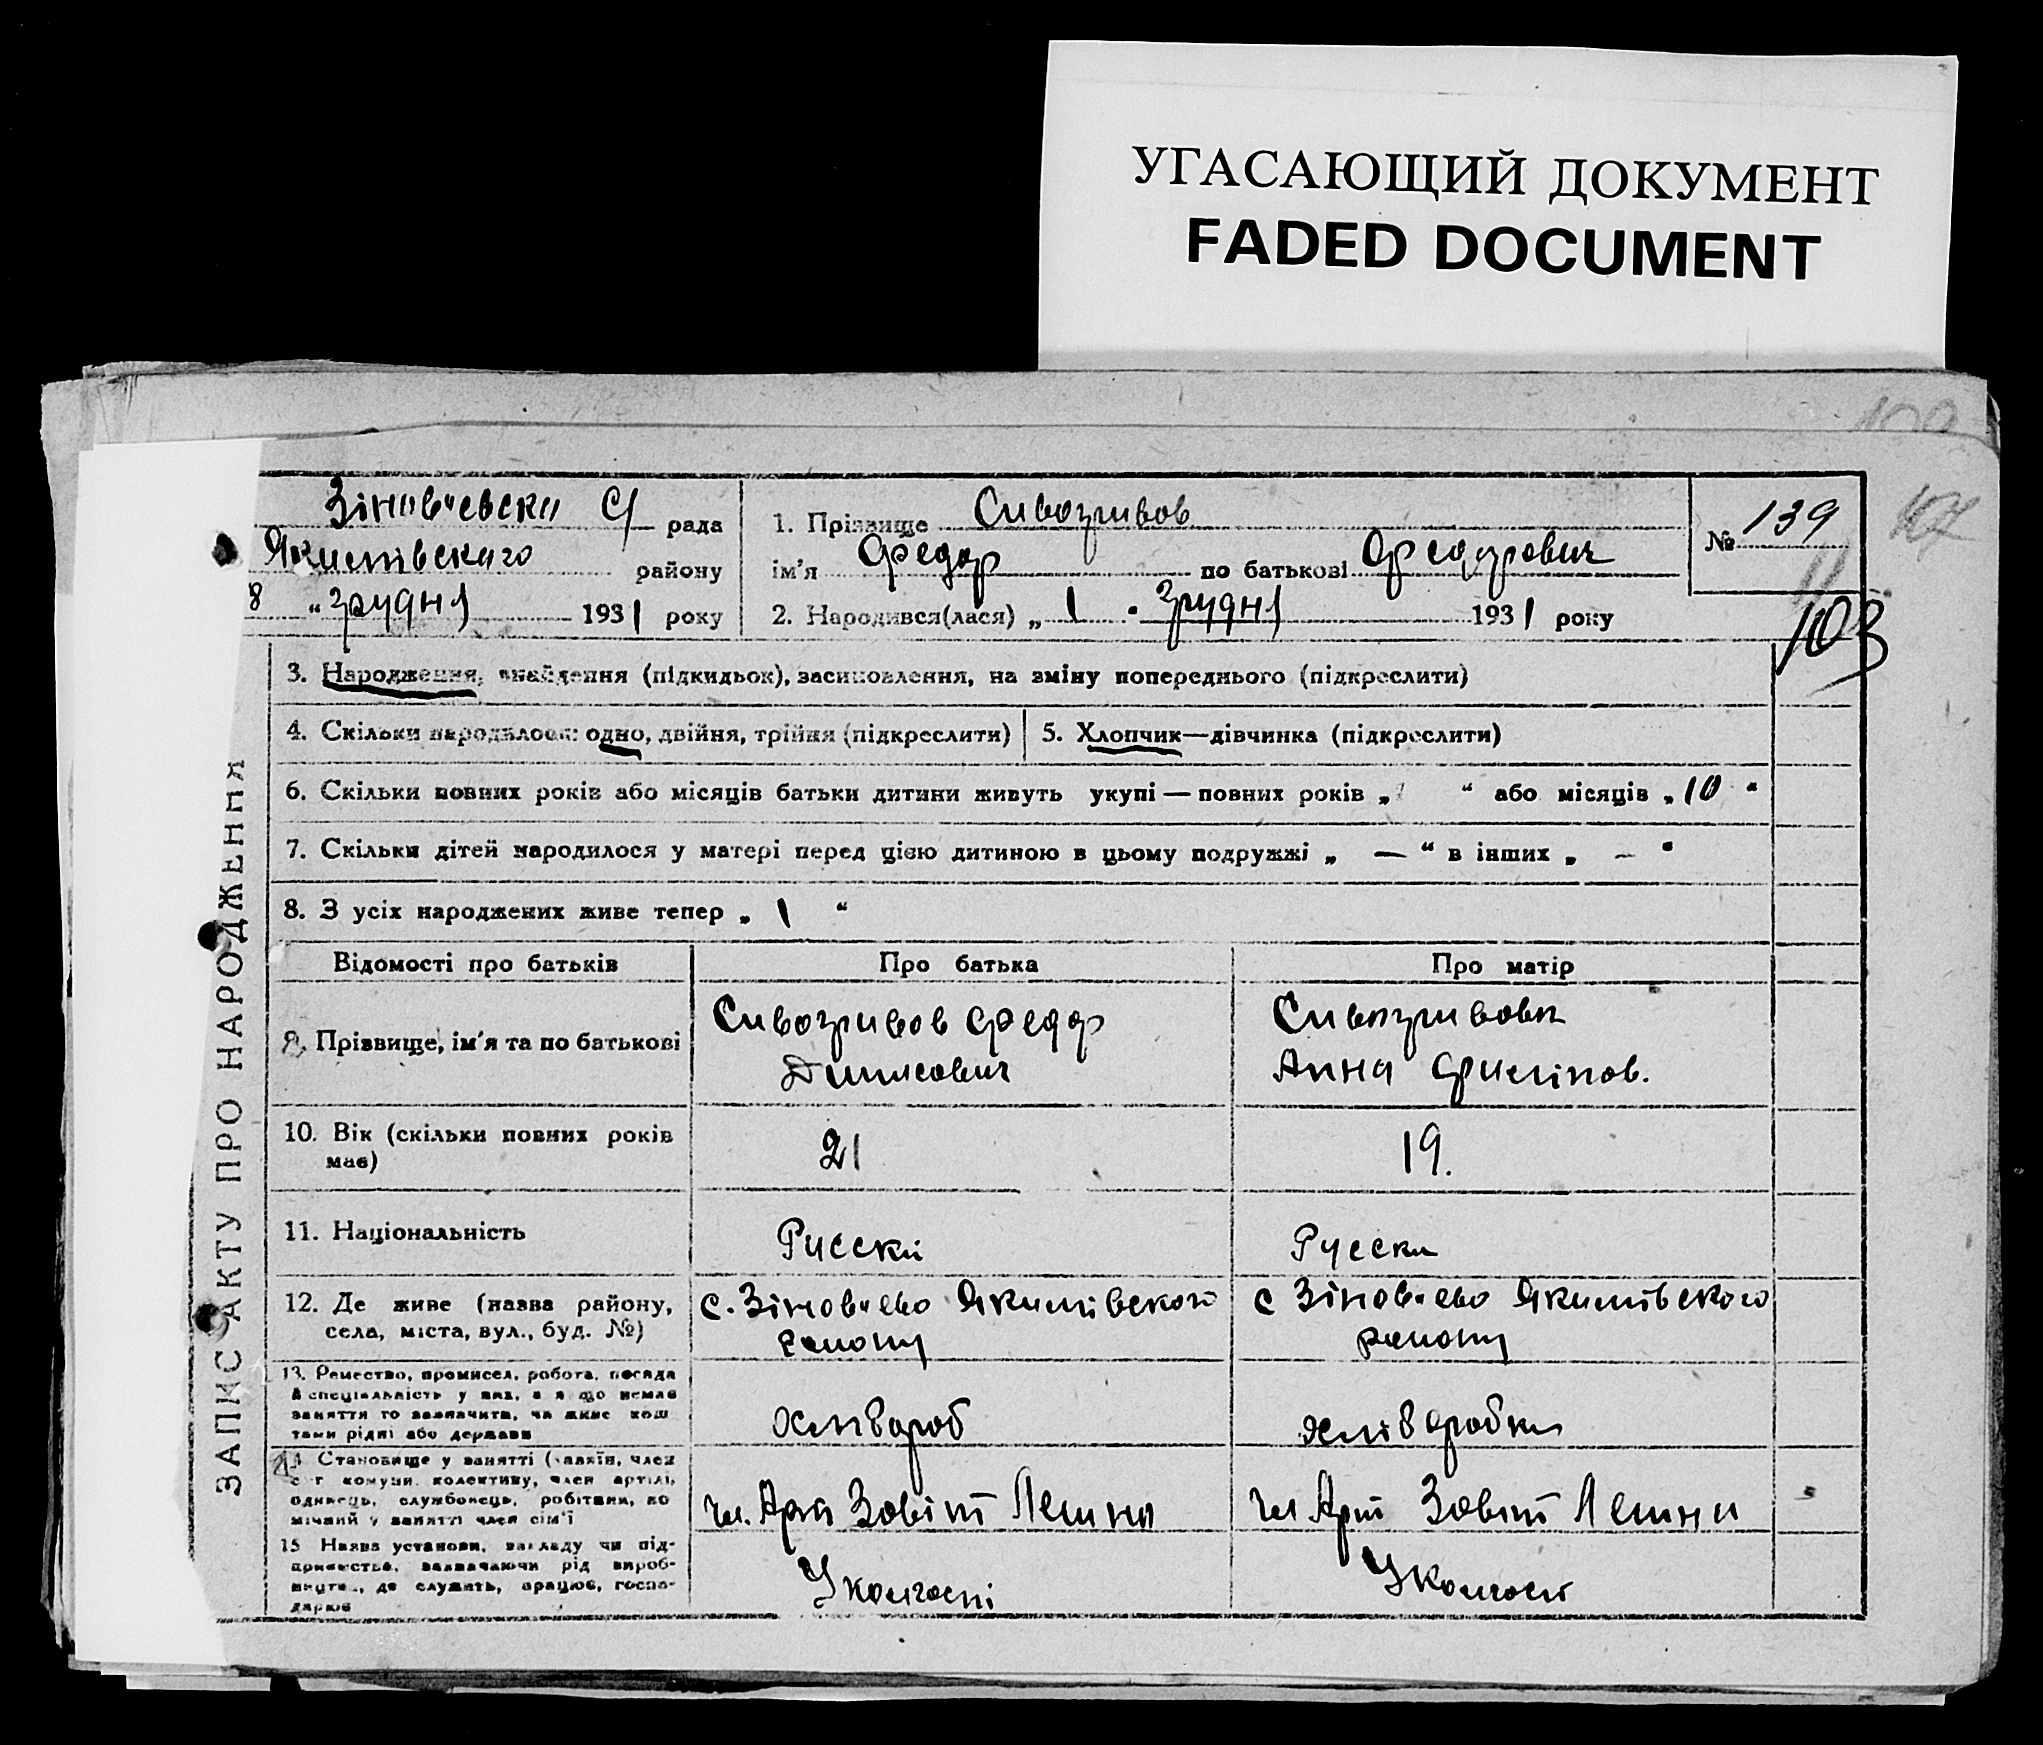 УГАСАЮЩИЙ ДОКУМЕНТ
FADED DOCUMENT
109
ЗАПИС АКТУ ПРО НАРОДЖЕННЯ
Зіновʼєвска С/ рада
Якимівского району
8 „ грудня 1931 року
1. Прізвище Сивогривов
ім'я Федор по батькові Федорович
2. Народився(лася) „ 1 " грудня 1931 року
№ 139
107
11
103
3. Народження, знайдення (підкидьок), засиновлення, на зміну попереднього (підкреслити)
4. Скільки народилося: одно, двійня, трійня (підкреслити)
5. Хлопчик—дівчинка (підкреслити)
6. Скільки повних років або місяців батьки дитини живуть укупі — повних років „ “ або місяців „ 10 “
7. Скільки дітей народилося у матері перед цією дитиною в цьому подружжі „ — “ в інших „ – “
8. З усіх народжених живе тепер „ 1 “
Відомості про батьків
Про батька
Про матір
9. Прізвище, ім'я та по батькові
Сивогривов Федор
Сивогривова
Анна Филіпов.
10. Вік (скільки повних років
має)
21
19.
11. Національність
Русски
Русска
12. Де живе (назва району,
села, міста, вул., буд. №)
с. Зіновʼєво Якимівского
району
с Зіновʼєво Якимівского
району
13. Ремество, промисел, робота, посада
й спеціяльність у них, а якщо немає
заняття то зазначити, на чиїє кош
тами рідні або держави
хлібороб
хліборобка
14. Становище у занятті (хазяїн, член
с.-г комуни, колективу, член артілі,
одинець, службовець, робітник, по
мічний у занятті член сім'ї
чл. Арт Зовіт Леніна
чл Арт Зовіт Леніна
15 Назва установи, закладу чи під-
приємства, зазначаючи рід вироб-
ництва, де служить, працює, госпо-
дарює
У колгоспі
У колгосп